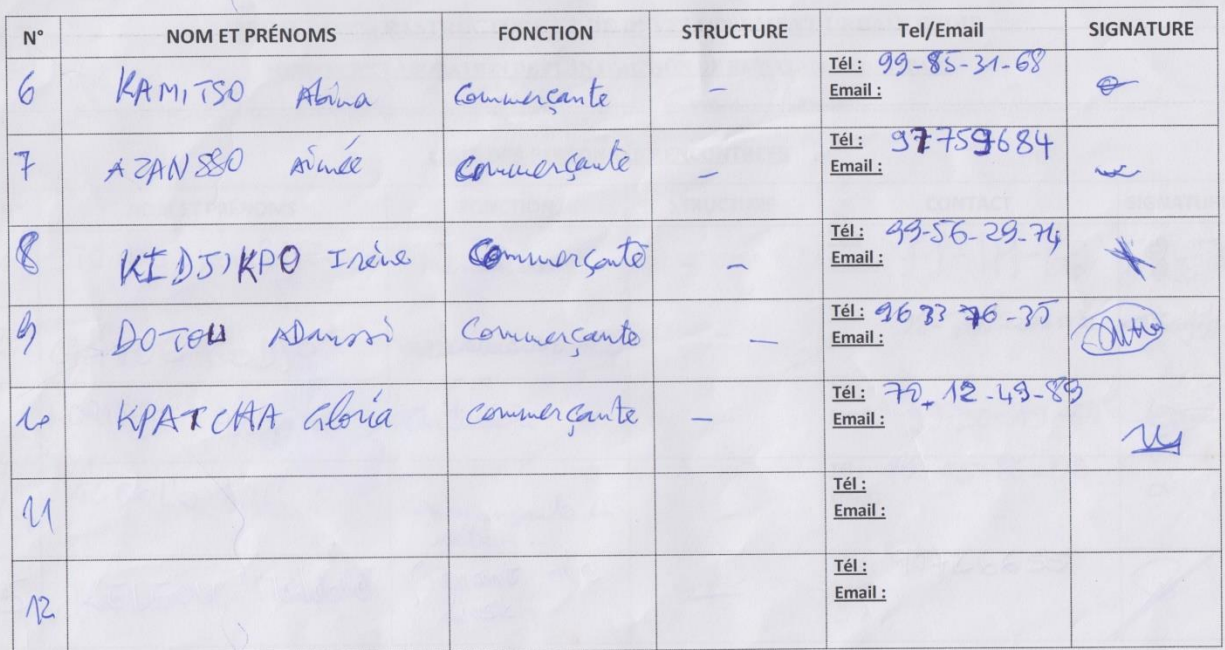 N° NOM ET PRÉNOMS FONCTION STRUCTURE Tel/Email SIGNATURE
6 KAMITSO Abina Commerçante - Tél : 99-85-31-68
Email :
7 AZANSSO Aimée Commerçante - Tél : 97759684
Email :
8 KIDJIKPO Irène Commerçante - Tél : 99-56-29-74
Email :
9 DOTOU Commerçante - Tél : 96 33 76-35
Email :
10 KPATCHA Gloria Commerçante - Tél : 70-12-49-89
Email :
11 Tél :
Email :
12 Tél :
Email :